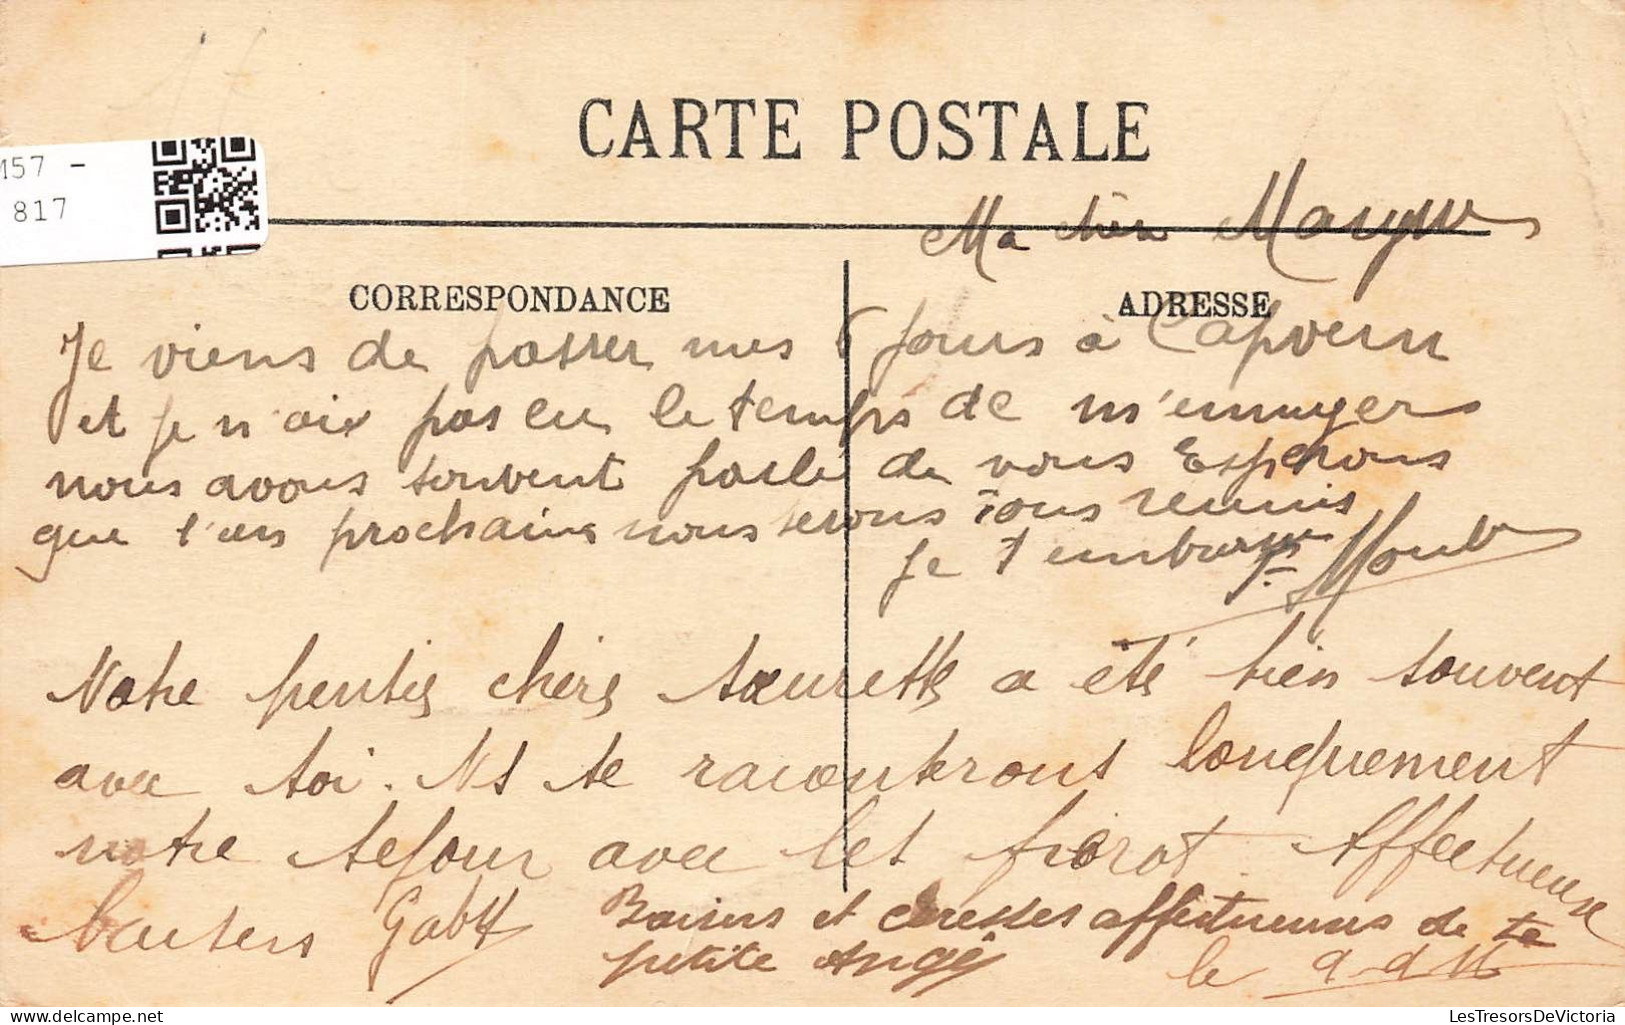 CARTE POSTALE
M57 -
817
Ma chère
CORRESPONDANCE
ADRESSE
Je viens de passer mes 6 jours à Capvern
et je n'ais pas eu le temps de m'ennuyer
nous avons souvent parlé de vous Esperons
que l'an prochains nous serons tous reunis
Je t'embrasse
Notre pensée chère soeurette a été bien souvent
avec toi. Ns te raconterons longuement
notre séjour avec les Affectueuse
baisers Gaby
Baisers et caresses affectueuses de ta
petite Angè
le
delcampe.net
LesTresorsDeVictoria